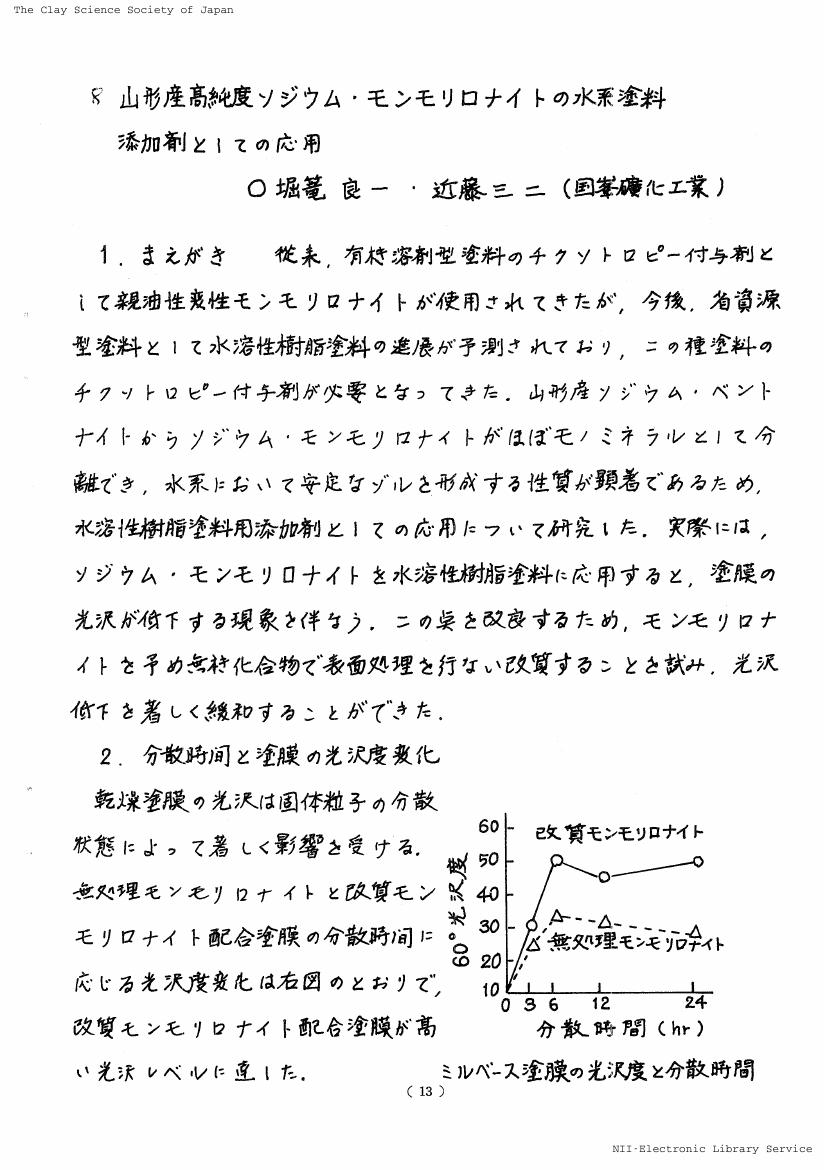 The Clay Science Society of Japan
8 山形産高純度ソジウム・モンモリロナイトの水系塗料
添加剤としての応用
○堀篭 良一・近藤三二(国峯礦化工業)
1. まえがき 従来,有機溶剤型塗料のチクソトロピー付与剤と
して親油性変性モンモリロナイトが使用されてきたが,今後,省資源
型塗料として水溶性樹脂塗料の進展が予測されており,この種塗料の
チクソトロピー付与剤が必要となってきた.山形産ソジウム・ベント
ナイトからソジウム・モンモリロナイトがほぼモノミネラルとして分
離でき,水系において安定なゾルを形成する性質が顕著であるため,
水溶性樹脂塗料用添加剤としての応用について研究した.実際には,
ソジウム・モンモリロナイトを水溶性樹脂塗料に応用すると,塗膜の
光沢が低下する現象を伴なう.この点を改良するため,モンモリロナ
イトを予め無機化合物で表面処理を行ない改質することを試み.光沢
低下を著しく緩和することができた.
2. 分散時間と塗膜の光沢度変化
乾燥塗膜の光沢は固体粒子の分散
状態によって著しく影響を受ける.
無処理モンモリロナイトと改質モン
モリロナイト配合塗膜の分散時間に
応じる光沢度変化は右図のとおりで,
改質モンモリロナイト配合塗膜が高
い光沢レベルに達した.
60°光沢度
60
50
40
30
20
10
改質モンモリロナイト
無処理モンモリロナイト
0 3 6 12 24
分散時間(hr)
ミルベース塗膜の光沢度と分散時間
(13)
NII-Electronic Library Service